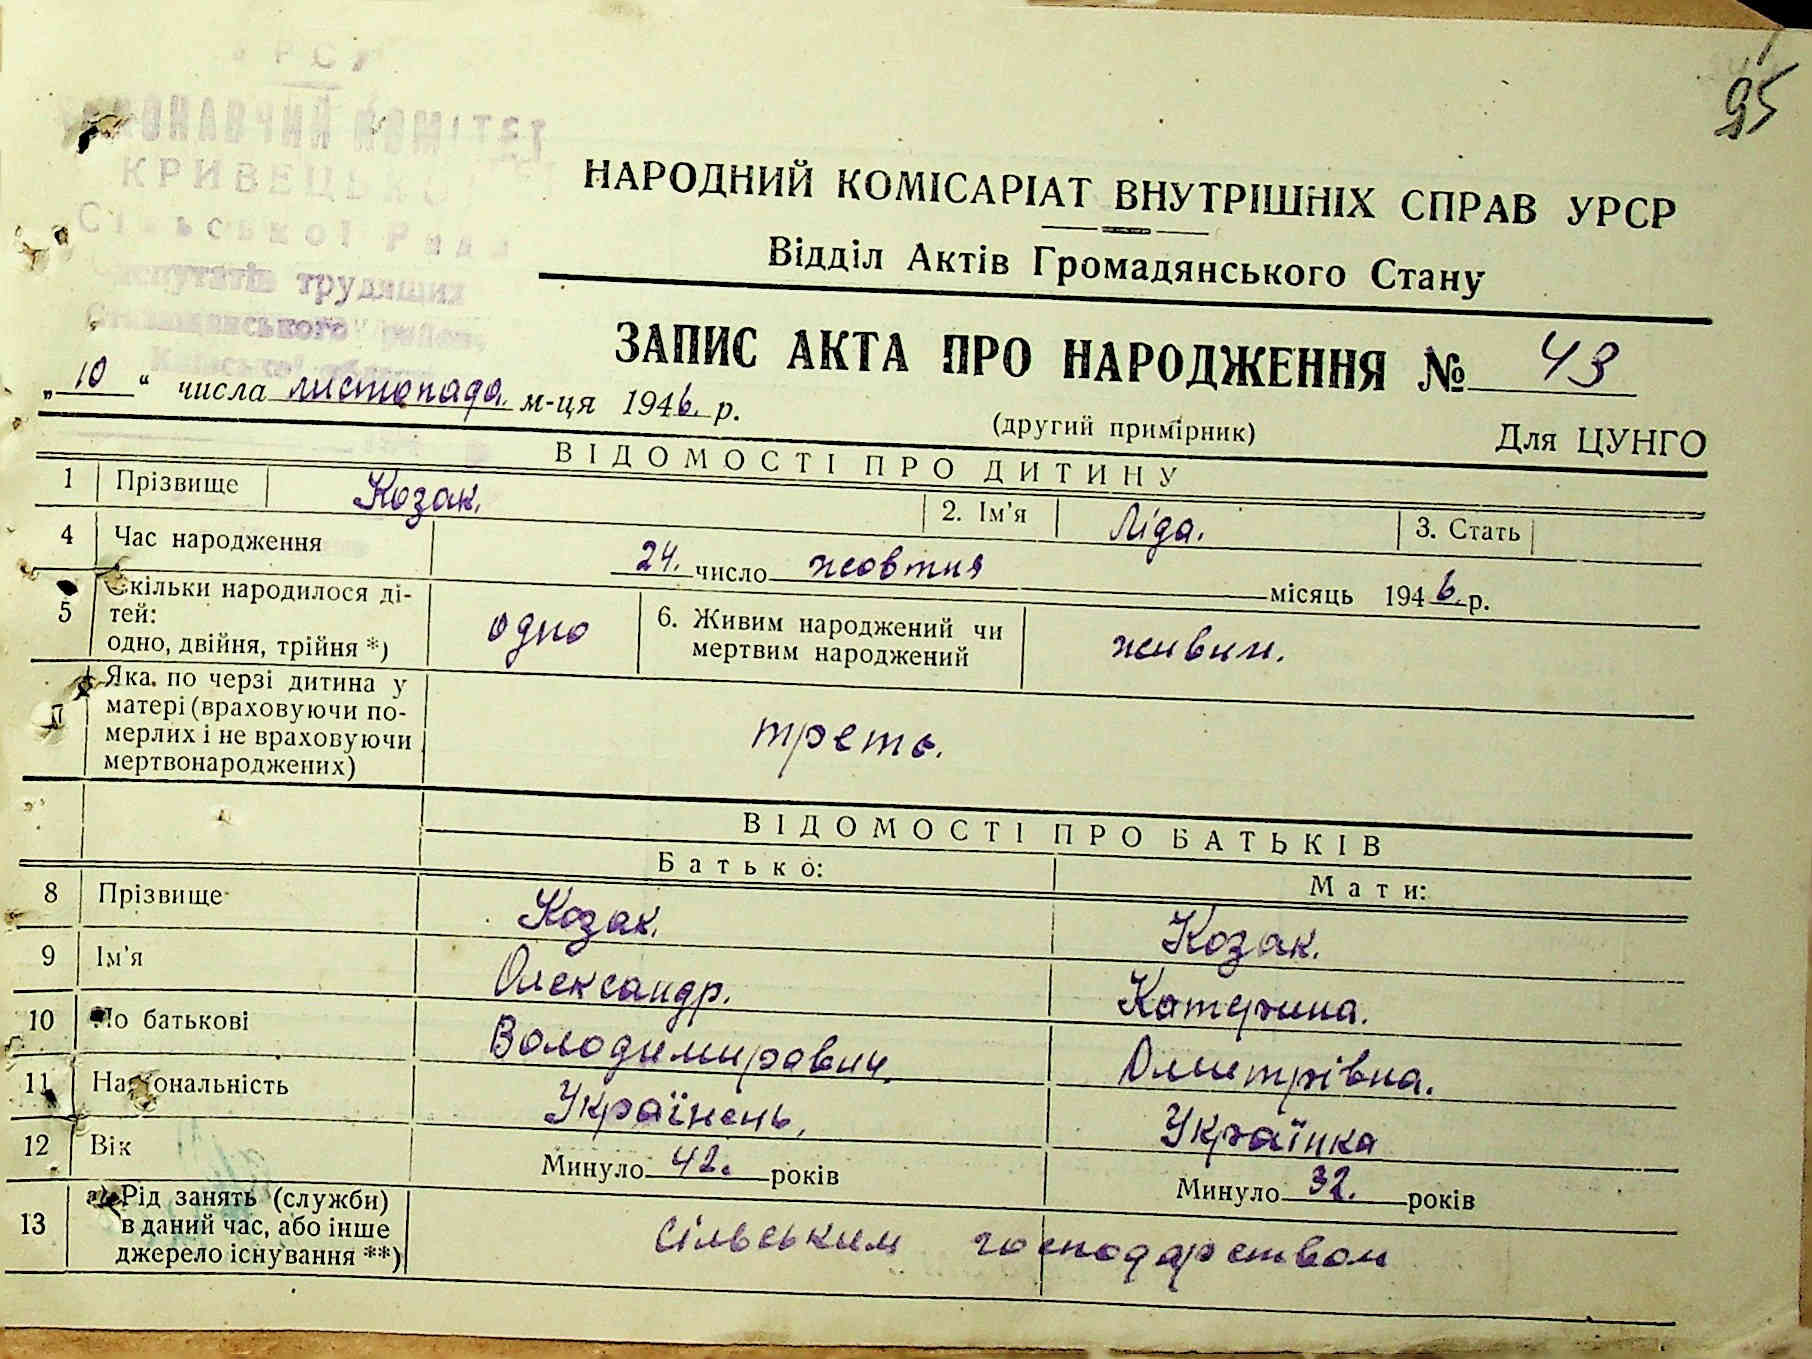 УРСР
ВИКОНАВЧИЙ КОМІТЕТ
КРИВЕЦЬКОЇ
Сільської Ради
депутатів трудящих
95
НАРОДНИЙ КОМІСАРІАТ ВНУТРІШНІХ СПРАВ УРСР
Відділ Актів Громадянського Стану
ЗАПИС АКТА ПРО НАРОДЖЕННЯ № 43
„10“ числа листопада. м-ця 1946. р.
(другий примірник) Для ЦУНГО
ВІДОМОСТІ ПРО ДИТИНУ
1 Прізвище Козак. 2. Ім'я Ліда. 3. Стать
4 Час народження 24. число жовтня місяць 1946. р.
5 Скільки народилося ді-
тей:
одно, двійня, трійня *) одно 6. Живим народжений чи
мертвим народжений живим.
7 Яка. по черзі дитина у
матері (враховуючи по-
мерлих і не враховуючи
мертвонароджених) третє.
ВІДОМОСТІ ПРО БАТЬКІВ
Батько: Мати:
8 Прізвище Козак. Козак.
9 Ім'я Олександр. Катерина.
10 По батькові Володимирович. Дмитрівна.
11 Національність Українець. Українка
12 Вік Минуло 42. років Минуло 32. років
13 а) Рід занять (служби)
в даний час, або інше
джерело існування **) сільським господарством